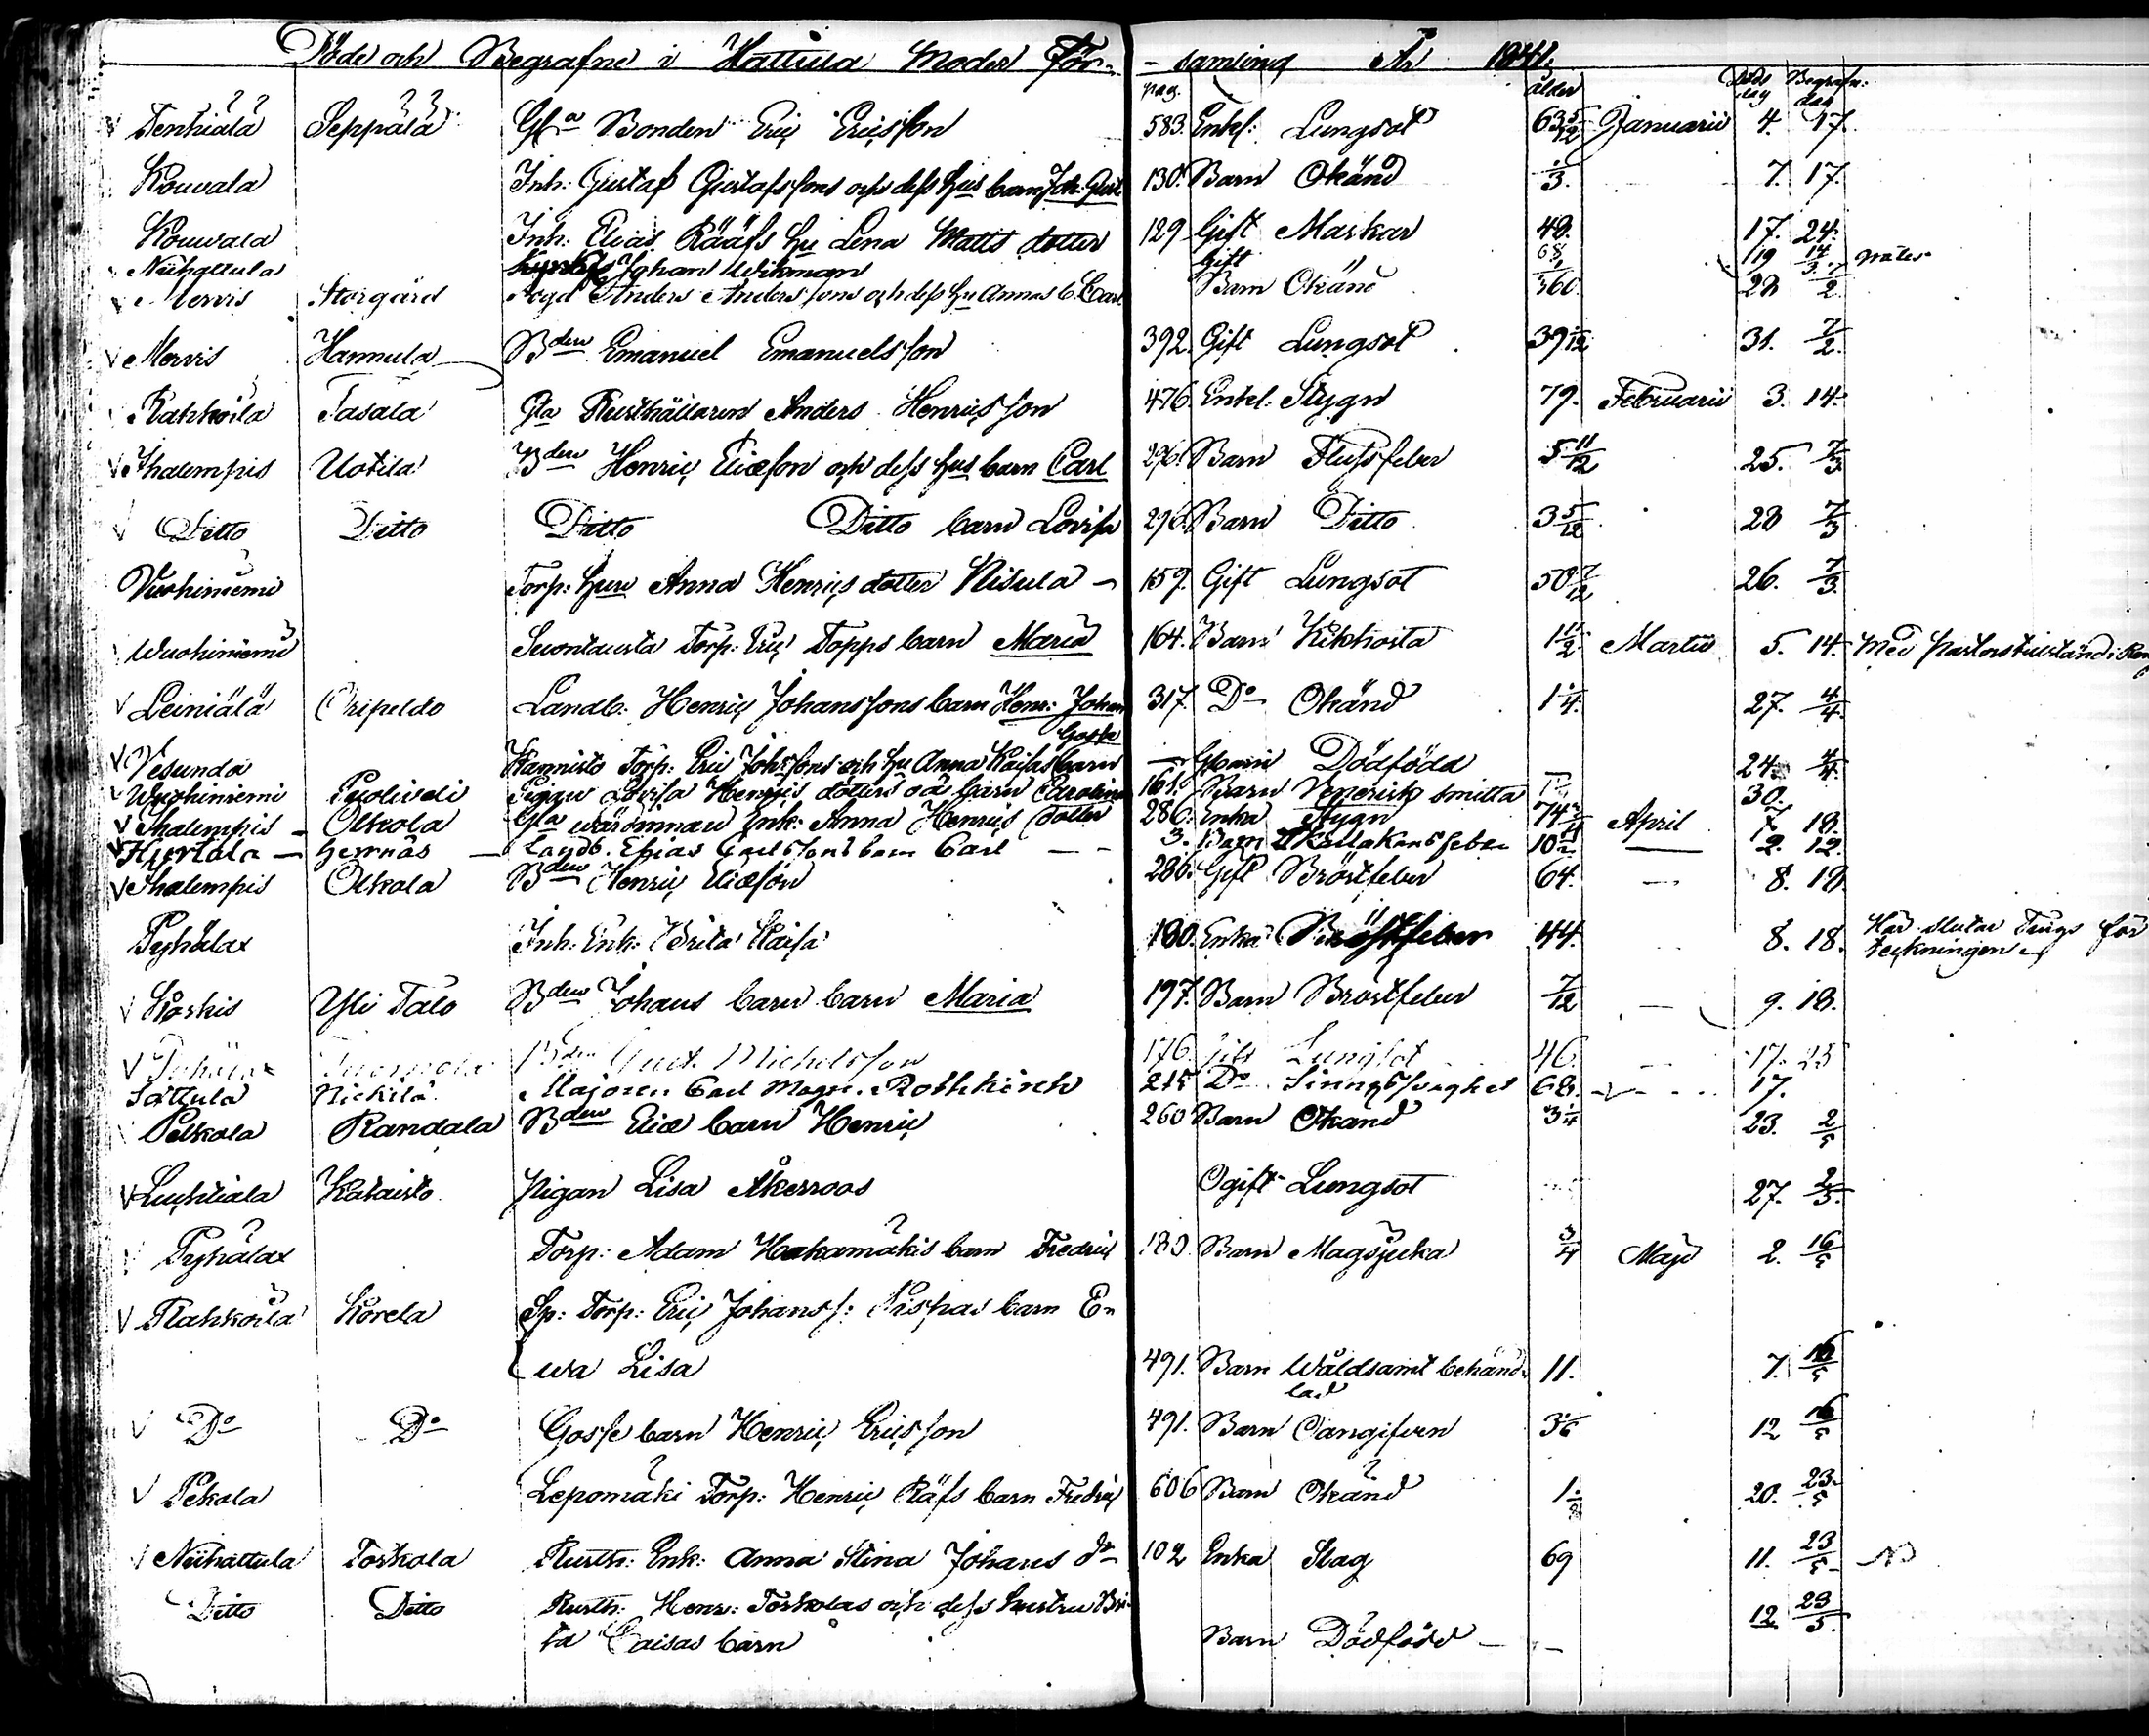 Döde och Begrafne i Hattula Moder För- samling År 1841.
pag. ålder Döds dag Begrafn: dag
Tenhiälä Seppälä Gla Bonden Eric Ericsson 583. Enkl: Lungsot 63 5/12 Januarii 4. 17.
Kouvala Inh: Gustaf Gustafssons och dess hus barn Joh: Gust 130. Barn Okänd 1/3. 7. 17.
Kouvala Inh: Elias Rääfs hu Lena Matts dotter 129 Gift Maskar 48. 17. 24.
Niihattula Johan Wikman Gift 68 19 14/3.
Mervis Storgård Anders Anderssons och dess hu Annas b. Carl Barn Okänd 28 7/2
Mervis Hannula Bden Emanuel Emanuelsson 392. Gift Lungsot 39 1/12 31. 7/2.
Rahkoila Tasala Gla Rusthållaren Anders Henricsson 476. Enkl: Stygn 79. Februarii 3. 14.
Ihalempis Uotila Bden Henric Eliæson och dess hus barn Carl 296. Barn Flussfeber 5 11/12 25. 7/3
Ditto Ditto Ditto Ditto barn Lovisa 296. Barn Ditto 3 5/12 28 7/3
Vuohiniemi Torp: huru Anna Henrics dotter Nisula 159. Gift Lungsot 50 7/12 26. 7/3.
Wuohiniemi Suontausta Torp: Eric Topps barn Maria 164. Barn Kikhosta 1 1/2 Martii 5. 14. Med Pastorstillstånd i
Leiniälä Oriheldo Landb: Henric Johanssons barn Henr: Johan 317. Do Okänd 1 1/4. 27. 4/4.
Gosse
Vesunda Kannisto Torp: Eric Johssons och hu Anna Kaisas barn — Barn Dödfödd 24. 4/4.
Wuohiniemi Puoliveli Pigan Lovisa Henrics dotters oä barn Carolina 161. Barn Venerisk smitta 30.
Ihalempis Olkola Gla värdinnan Enk: Anna Henrics dotter 286. Enka Stygn 74 April 7 18.
Hjertola — Hernäs — Landb. Elias Carlssons barn Carl — — 3. Barn Skarlakansfeber 10 2. 12.
Ihalempis Olkola Bden Henric Eliæson 286. Gift Bröstfeber 64. — 8. 18
Pyhälax Inh: Enk: Brita Kaisa 180. Enka Bröstfeber 44. 8. 18. Här slutar Tings för
teckningen
Koskis Yli Talo Bden Johans barn barn Maria 197. Barn Bröstfeber 7/12 — 9. 18.
Bden Gust. Michelsson 176. Gift Lungsot 46. 17. 25
Sattula Nickilä. Majoren Carl Magn. Rothkirch 215 Do Sinnessvaghet 68. 17.
Pelkola Randala Bden Eliæ barn Henric 260 Barn Okänd 3 1/4 23. 2/5
Luhtiala Katisto Pigan Lisa Åkerroos Ogift Lungsot 27. 2/5.
Pyhälax Torp: Adam Hakamäkis barn Fredric 180. Barn Magsjuka 3/4 Maji 2. 16/5
Rahkoila Korela Sp: Torp: Eric Johanss: Pispas barn E-
wa Lisa 491. Barn Wåldsamt behand- 11. 7. 16/5
lad
Do Do Gosse barn Henric Ericsson 491. Barn Oangifven 3 1/6 12 16/5
Pekola Lepomäki Torp: Henric Räfs barn Fredric 606 Barn Okänd 20. 23/5
Niihattula Torkola Rusth: Enk: Anna Stina Johans dr 102 Enka Slag 69 11. 23/5
Ditto Ditto Rusth: Henr: Torkolas och dess hustru Bri- 12 23/5.
ta Caisas barn Barn Dödfödd — —